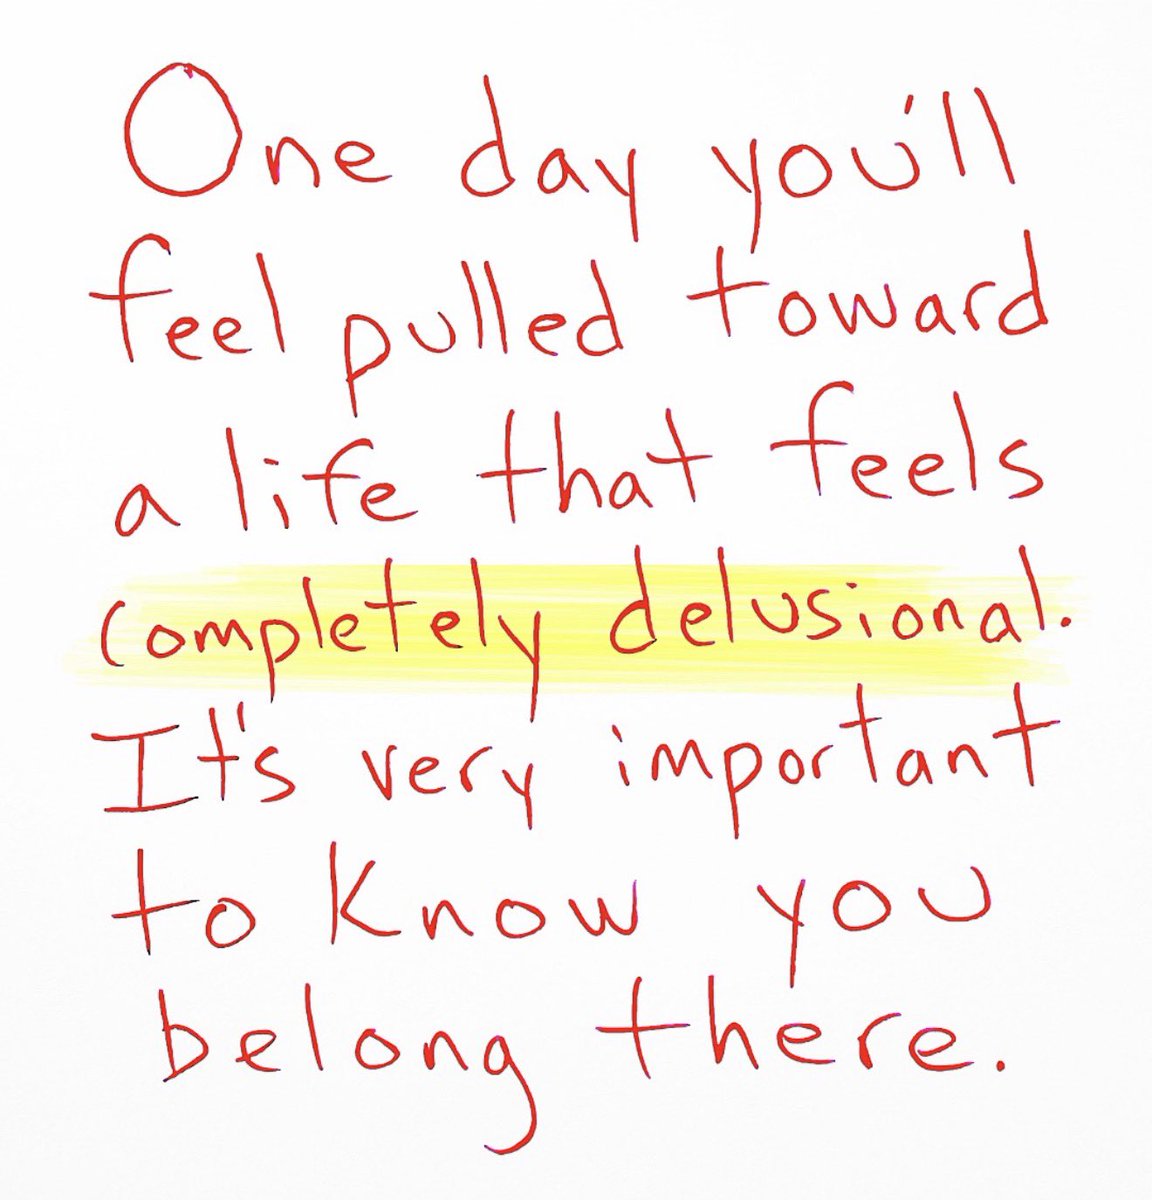 One day you'll
feel pulled toward
a life that feels
completely delusional.
It's very important
to know you
belong there.